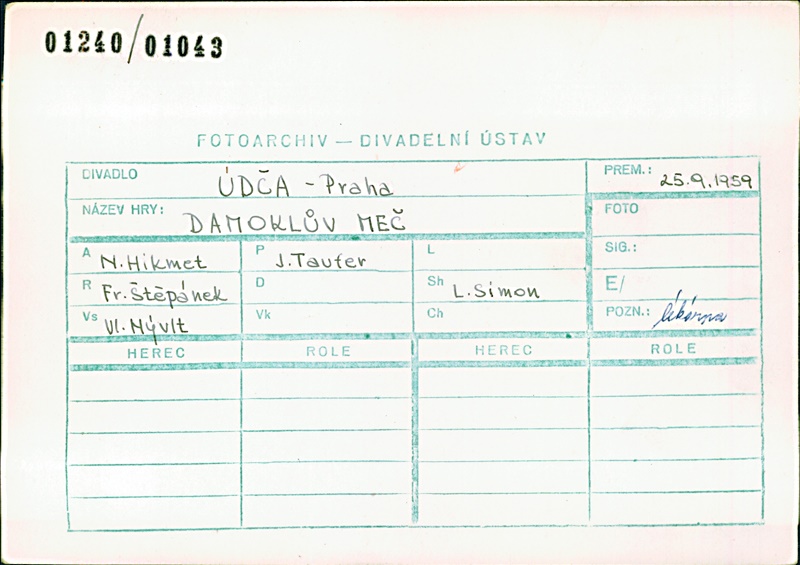 01240/01043
FOTOARCHIV — DIVADELNÍ ÚSTAV
DIVADLO ÚDČA - Praha PREM.: 25.9.1959
NÁZEV HRY: DAMOKLŮV MEČ FOTO
A N. Hikmet P J. Taufer L SIG.:
R Fr. Štěpánek D Sh L. Simon E/
Vs Vl. Mývlt Vk Ch POZN.: lékárna
HEREC ROLE HEREC ROLE